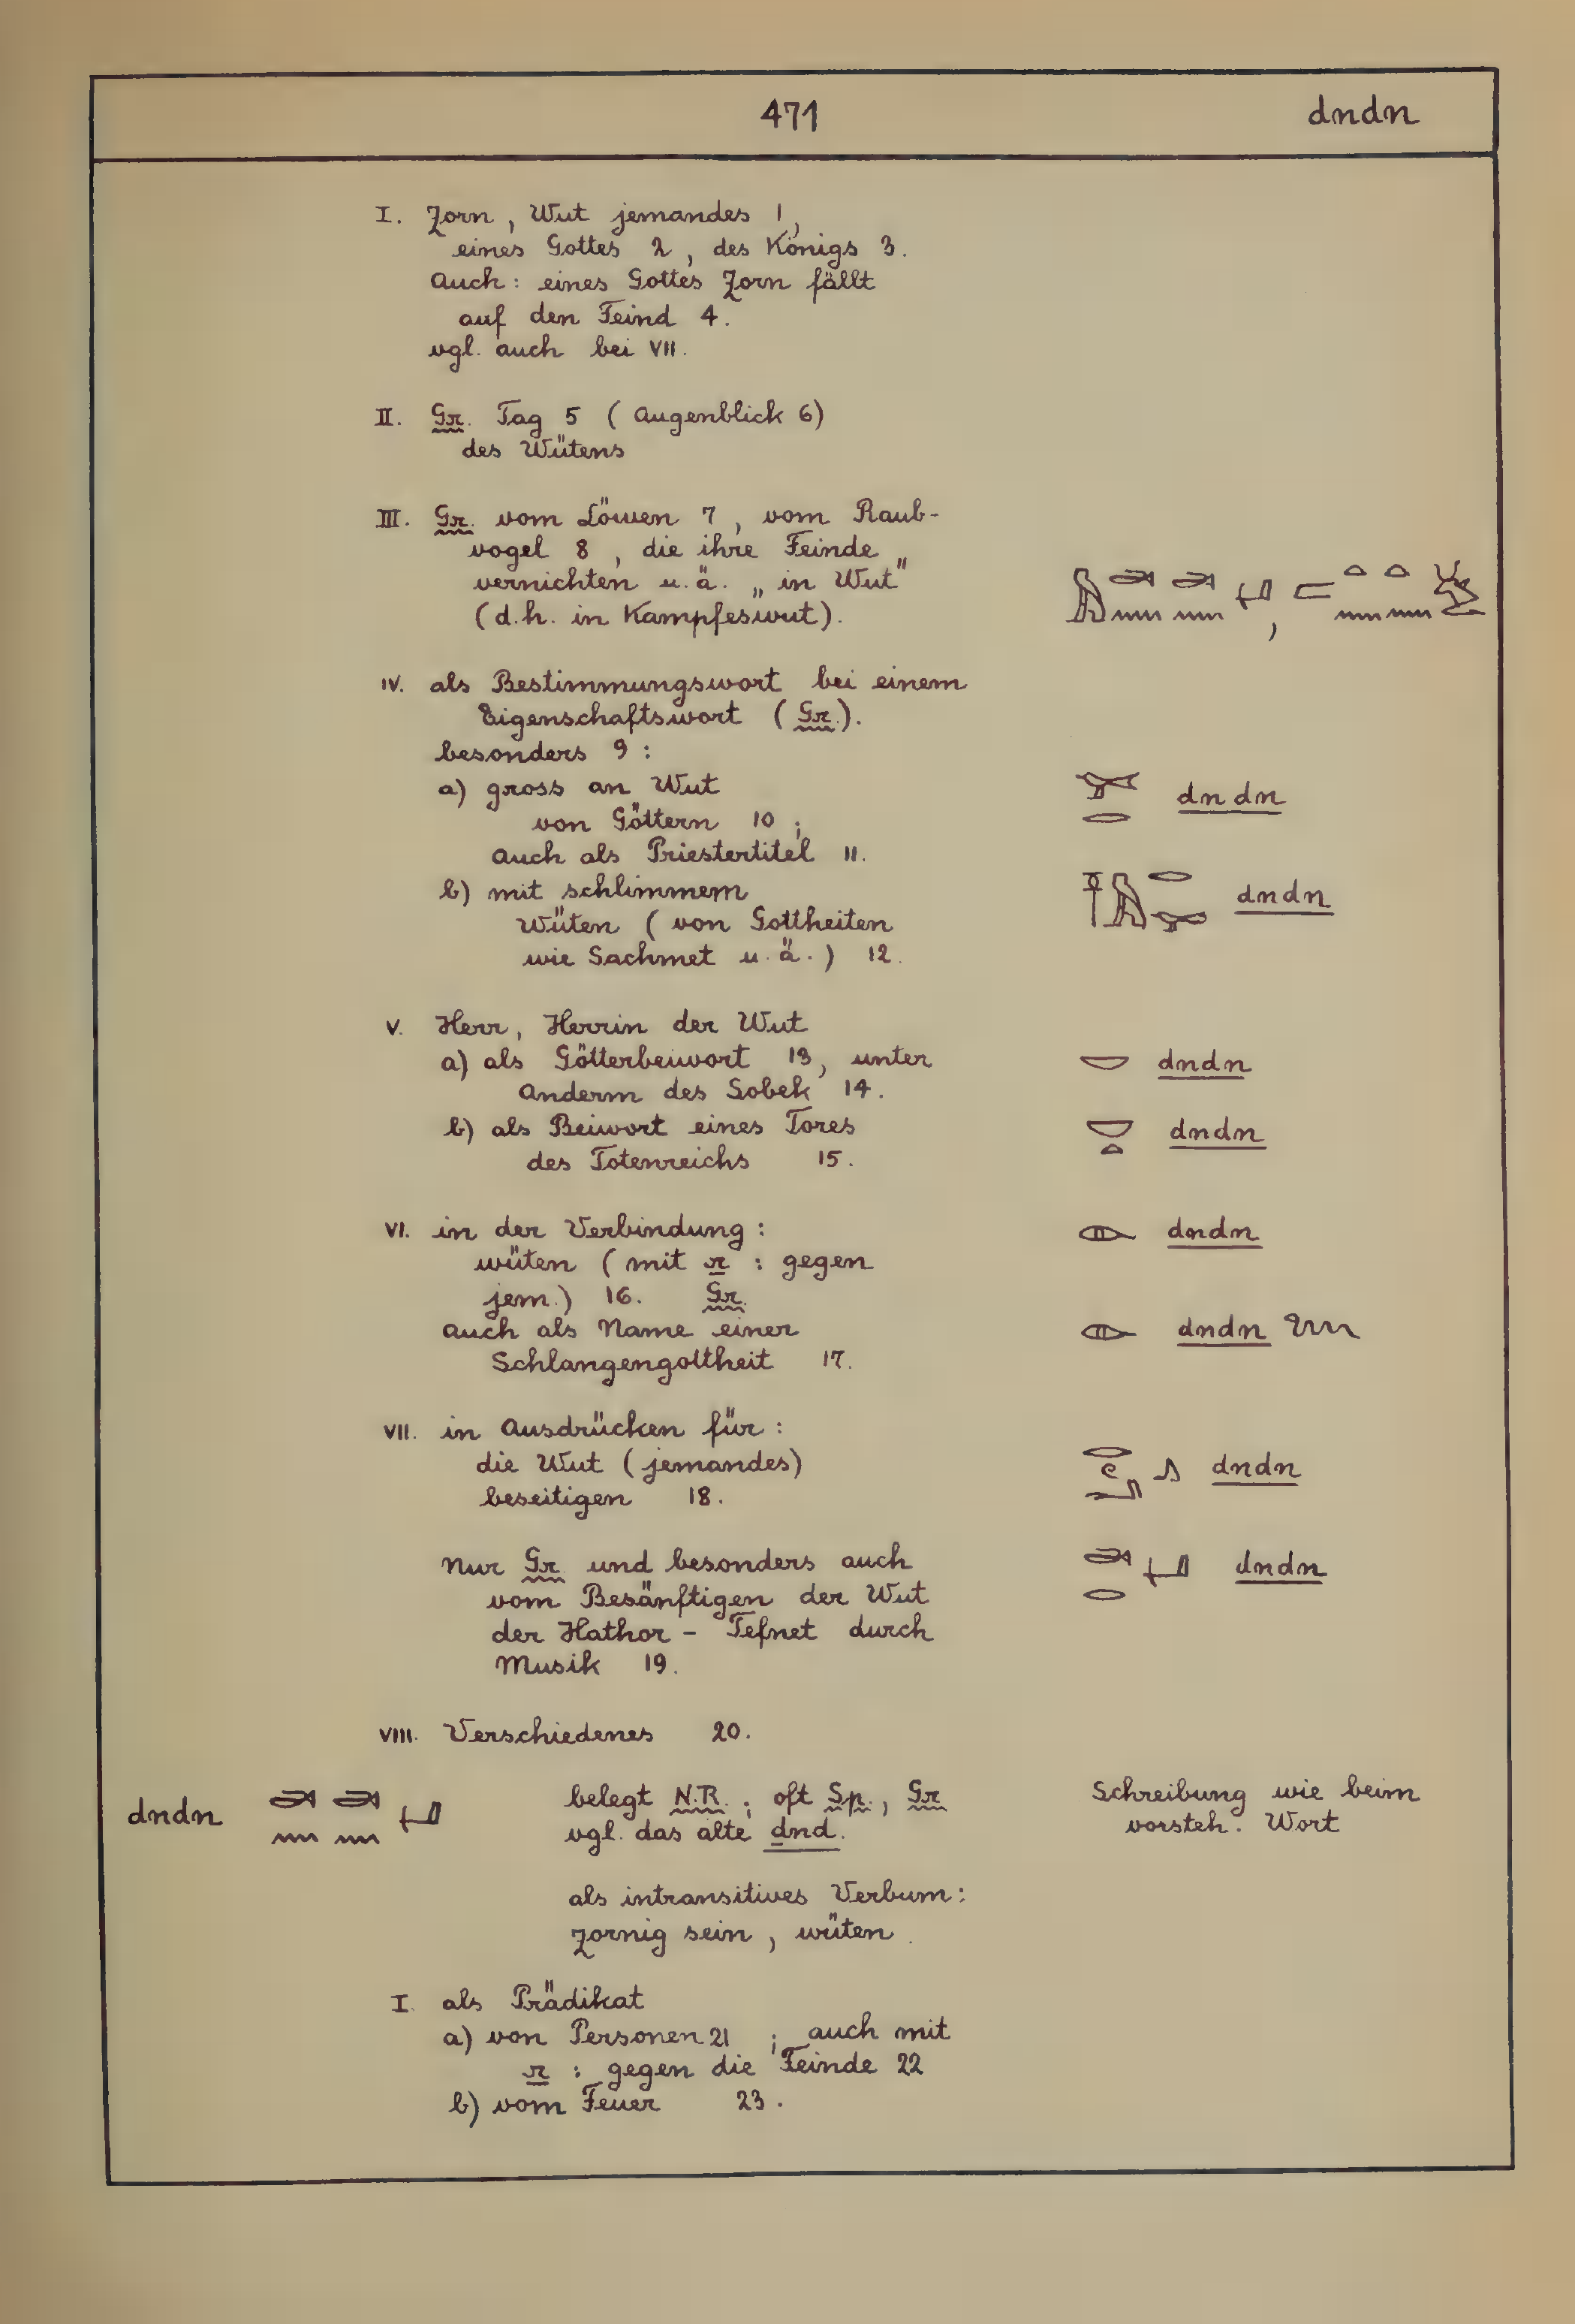 471 dndn
I. Zorn, Wut jemandes 1,
eines Gottes 2, des Königs 3.
Auch: eines Gottes Zorn fällt
auf den Feind 4.
vgl. auch bei VII.
II. Gr. Tag 5 (Augenblick 6)
des Wütens
III. Gr. vom Löwen 7, vom Raub-
vogel 8, die ihre Feinde
vernichten u.ä. „in Wut"
(d.h. in Kampfeswut).
IV. als Bestimmungswort bei einem
Eigenschaftswort (Gr.).
besonders 9:
a) gross an Wut dndn
von Göttern 10;
auch als Priestertitel 11.
b) mit schlimmem dndn
Wüten (von Gottheiten
wie Sachmet u.ä.) 12.
V. Herr, Herrin der Wut
a) als Götterbeiwort 13, unter dndn
Anderm des Sobek 14.
b) als Beiwort eines Tores dndn
des Totenreichs 15.
VI. in der Verbindung: dndn
wüten (mit r : gegen
jem.) 16. Gr.
auch als Name einer dndn
Schlangengottheit 17.
VII. in Ausdrücken für:
die Wut (jemandes) dndn
beseitigen 18.
Nur Gr. und besonders auch dndn
vom Besänftigen der Wut
der Hathor-Tefnet durch
Musik 19.
VIII. Verschiedenes 20.
dndn belegt N.R.; oft Sp., Gr. Schreibung wie beim
vgl. das alte dnd. vorsteh. Wort
als intransitives Verbum:
zornig sein, wüten.
I. als Prädikat
a) von Personen 21; auch mit
r : gegen die Feinde 22
b) vom Feuer 23.